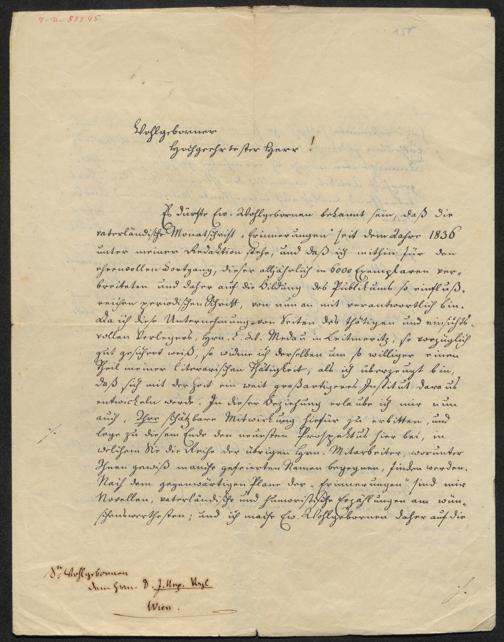 I. N. 83345
158
Wohlgeborner
Hochgeehrtester Herr!
Es dürfte Ew. Wohlgebornen bekannt sein, daß die
vaterländische Monatschrift „Erinnerungen" seit dem Jahre 1836
unter meiner Redaktion stehe, und daß ich mithin für den
ehrenvollen Fortgang, dieser alljährlich in 6000 Exemplaren ver-
breiteten und daher auf die Bildung des Publikums so einfluß-
reichen periodischen Schrift, von nun an mit verantwortlich bin.
Da ich diese Unternehmung von Seiten des thätigen und einsichts-
vollen Verlegers, Hrn. C. W. Medau in Leitmeritz, so vorzüglich
gut gesichert weiß, so widme ich derselben um so williger einen
Theil meiner literarischen Thätigkeit, als ich überzeugt bin,
daß sich mit der Zeit ein weit großartigeres Institut daraus
entwickeln werde. In dieser Beziehung erlaube ich mir nun
auch, Ihre schätzbare Mitwirkung hiefür zu erbitten, und
lege zu diesem Ende den neuesten Prospektus hier bei, in
welchem Sie die Reihe der übrigen Hrn. Mitarbeiter, worunter
Ihnen gewiß manche gefeierten Namen begegnen, finden werden.
Nach dem gegenwärtigen Plane der „Erinnerungen" sind mir
Novellen, vaterländische und humoristische Erzählungen am wün-
schenswerthesten; und ich mache Ew. Wohlgebornen daher auf die
Sr. Wohlgebornen
dem Hrn. J. Nep. Vogl
Wien.